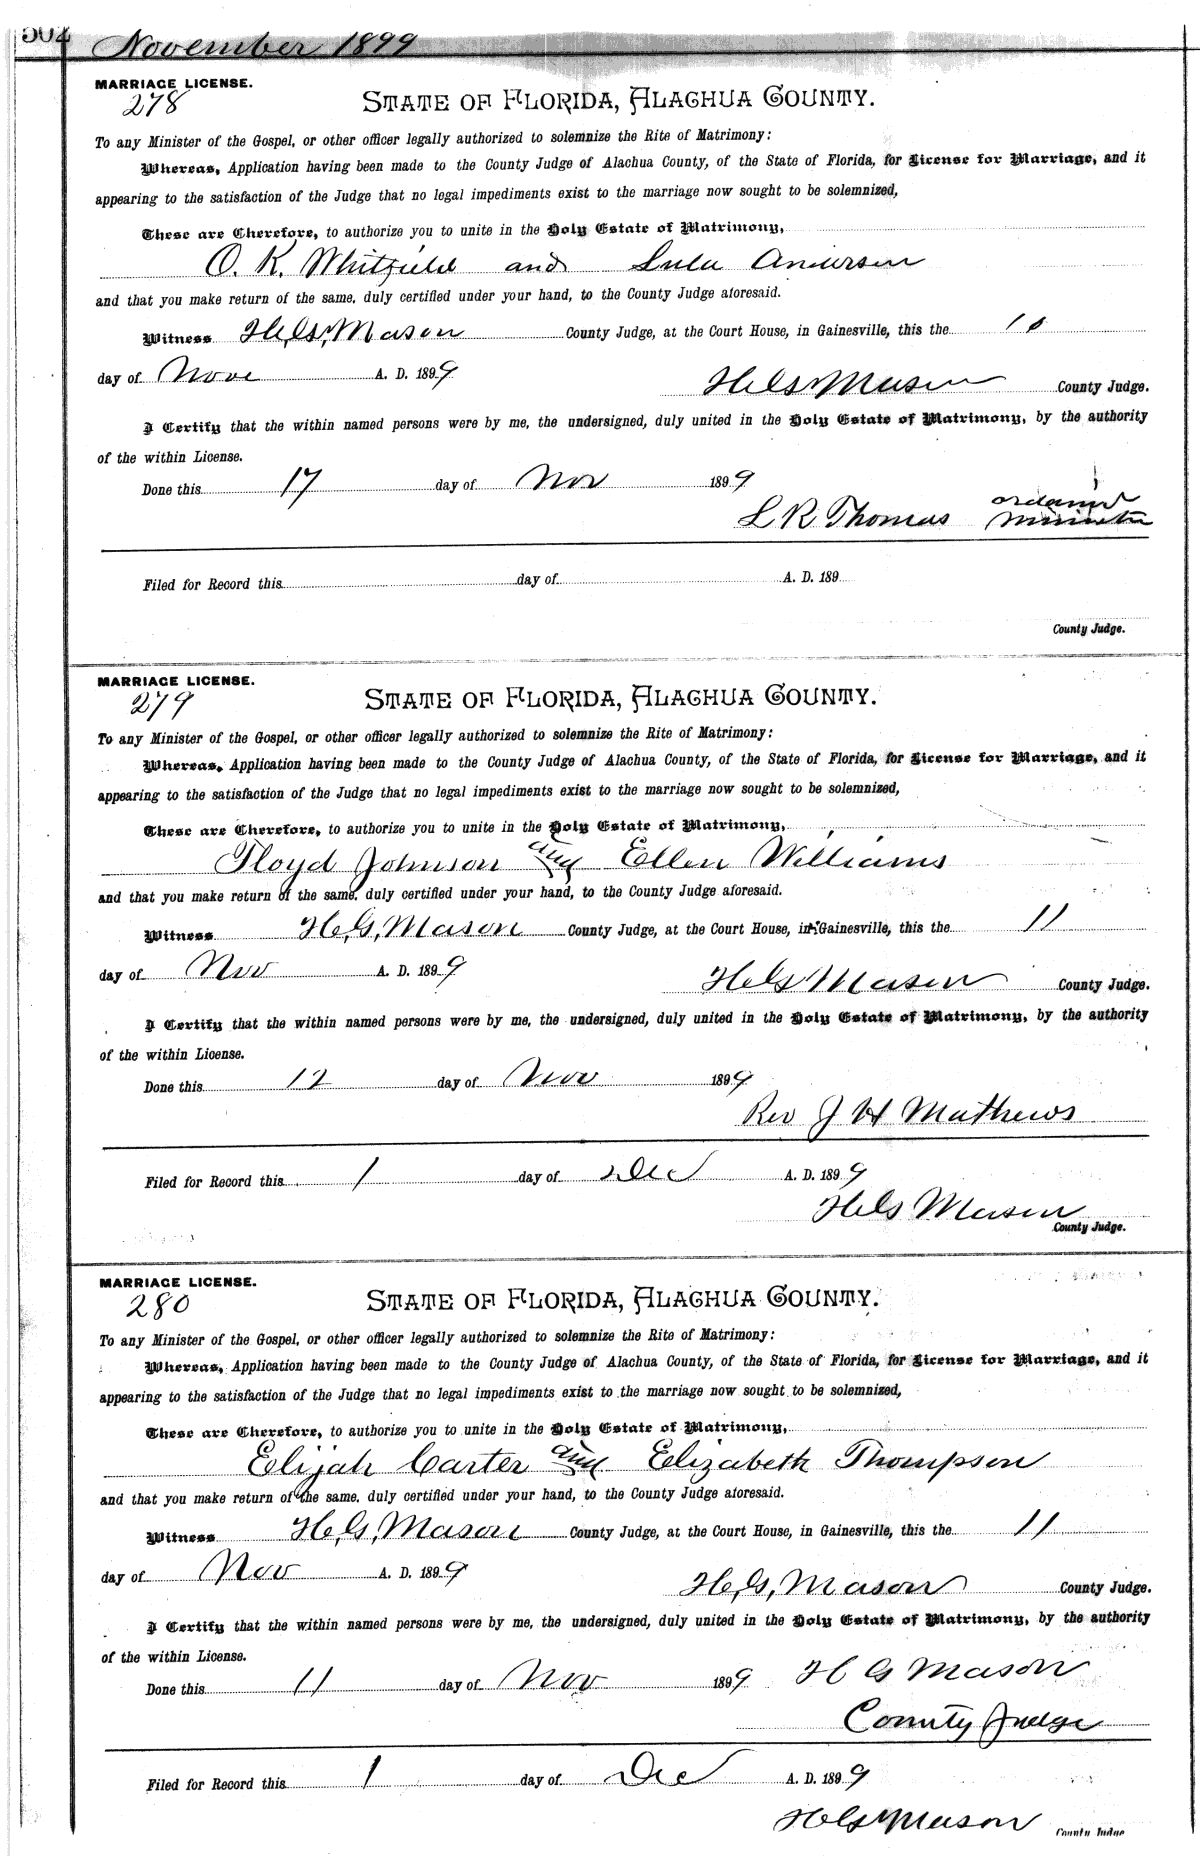 502
November 1899
MARRIAGE LICENSE.
278
STATE OF FLORIDA, ALACHUA COUNTY.
To any Minister of the Gospel, or other officer legally authorized to solemnize the Rite of Matrimony:
Whereas, Application having been made to the County Judge of Alachua County, of the State of Florida, for License for Marriage, and it
appearing to the satisfaction of the Judge that no legal impediments exist to the marriage now sought to be solemnized,
These are Therefore, to authorize you to unite in the Holy Estate of Matrimony,
O. K. Whitfield and Lula Anderson
and that you make return of the same, duly certified under your hand, to the County Judge aforesaid.
Witness H. G. Mason County Judge, at the Court House, in Gainesville, this the 10
day of Nove A. D. 1899
H G Mason County Judge.
I Certify that the within named persons were by me, the undersigned, duly united in the Holy Estate of Matrimony, by the authority
of the within License.
Done this 17 day of Nov 1899
L R Thomas ordained minister
Filed for Record this day of A. D. 189
County Judge.
MARRIAGE LICENSE.
279
STATE OF FLORIDA, ALACHUA COUNTY.
To any Minister of the Gospel, or other officer legally authorized to solemnize the Rite of Matrimony:
Whereas, Application having been made to the County Judge of Alachua County, of the State of Florida, for License for Marriage, and it
appearing to the satisfaction of the Judge that no legal impediments exist to the marriage now sought to be solemnized,
These are Therefore, to authorize you to unite in the Holy Estate of Matrimony,
Floyd Johnson and Ellen Williams
and that you make return of the same, duly certified under your hand, to the County Judge aforesaid.
Witness H. G. Mason County Judge, at the Court House, in Gainesville, this the 11
day of Nov A. D. 1899
H G Mason County Judge.
I Certify that the within named persons were by me, the undersigned, duly united in the Holy Estate of Matrimony, by the authority
of the within License.
Done this 12 day of Nov 1899
Rev J H Mathews
Filed for Record this 1 day of Dec A. D. 1899
H G Mason
County Judge.
MARRIAGE LICENSE.
280
STATE OF FLORIDA, ALACHUA COUNTY.
To any Minister of the Gospel, or other officer legally authorized to solemnize the Rite of Matrimony:
Whereas, Application having been made to the County Judge of Alachua County, of the State of Florida, for License for Marriage, and it
appearing to the satisfaction of the Judge that no legal impediments exist to the marriage now sought to be solemnized,
These are Therefore, to authorize you to unite in the Holy Estate of Matrimony,
Elijah Carter and Elizabeth Thompson
and that you make return of the same, duly certified under your hand, to the County Judge aforesaid.
Witness H. G. Mason County Judge, at the Court House, in Gainesville, this the 11
day of Nov A. D. 1899
H. G. Mason County Judge.
I Certify that the within named persons were by me, the undersigned, duly united in the Holy Estate of Matrimony, by the authority
of the within License.
Done this 11 day of Nov 1899 H G Mason
County Judge
Filed for Record this 1 day of Dec A. D. 1899
H G Mason County Judge